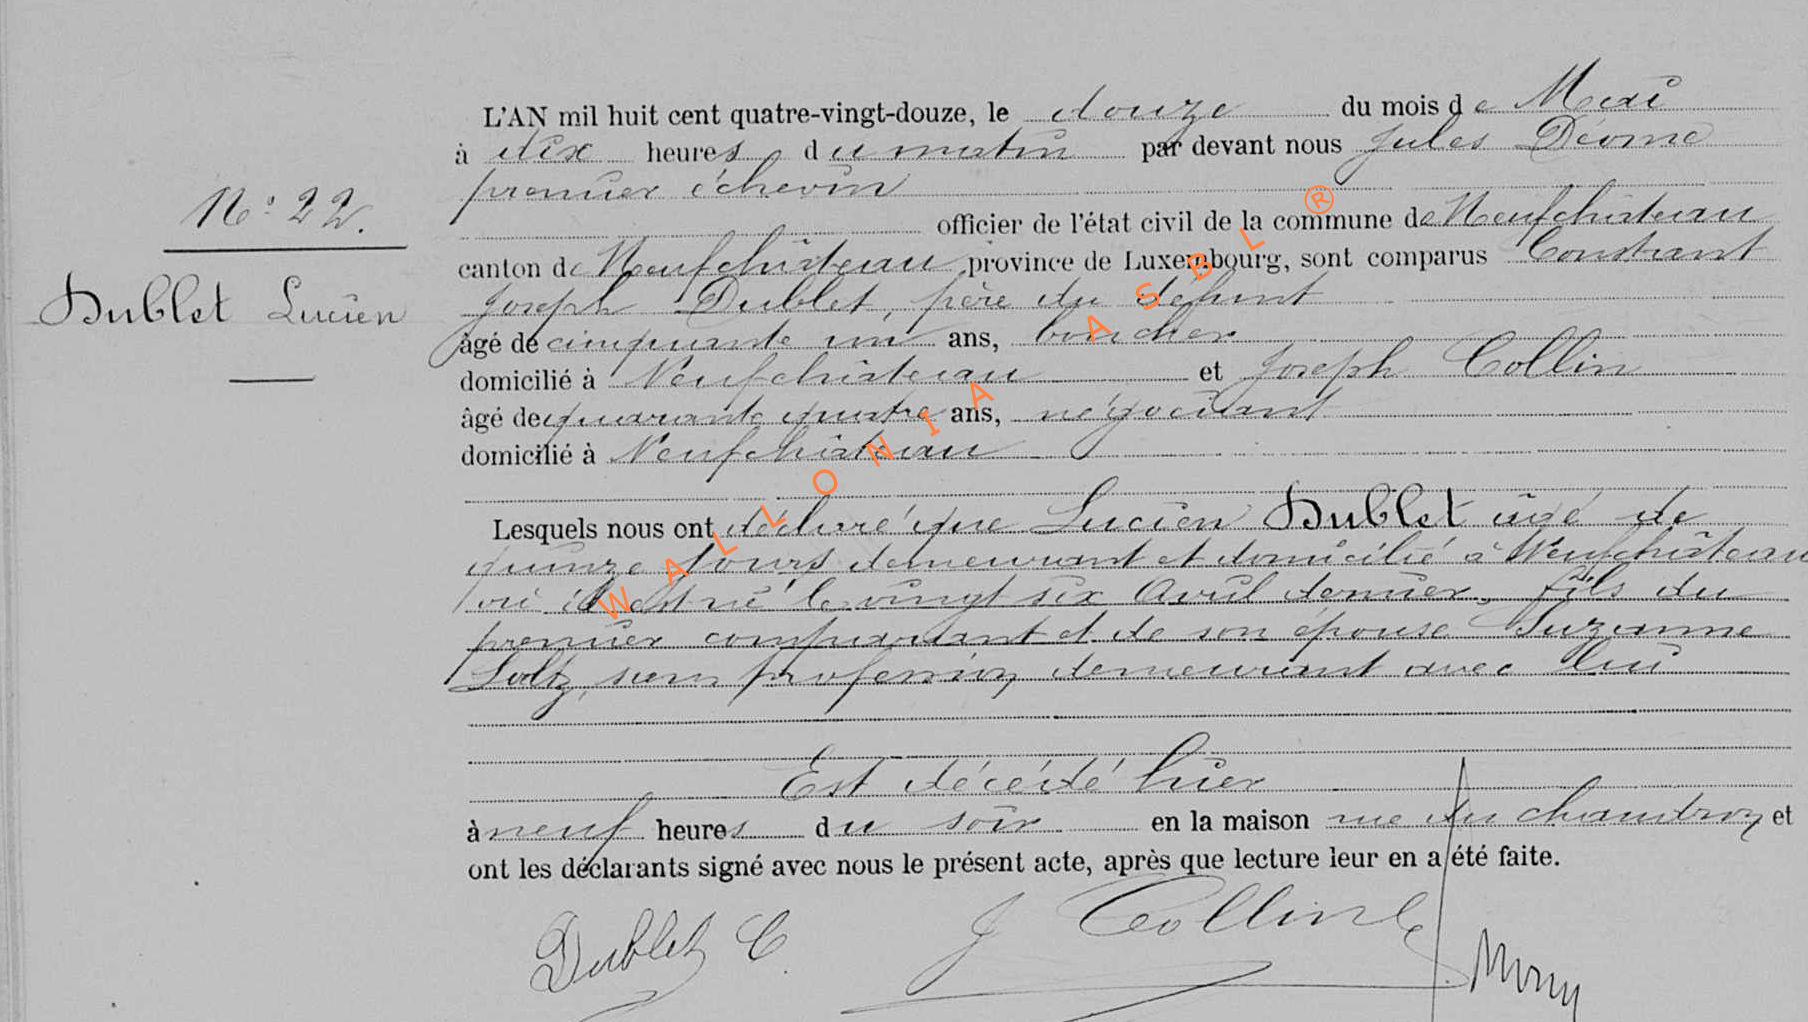 L'AN mil huit cent quatre-vingt-douze, le douze du mois de Mai
à dix heures du matin par devant nous Jules
premier échevin
N° 22.
officier de l'état civil de la commune de Neufchâteau
canton de Neufchâteau province de Luxembourg, sont comparus Constant
Dublet Lucien
Joseph Dublet, père du défunt
âgé de cinquante un ans, boucher
domicilié à Neufchâteau et Joseph Collin
âgé de quarante quatre ans, négociant
domicilié à Neufchâteau
Lesquels nous ont déclaré que Lucien Dublet âgé de
quinze jours demeurant et domicilié à Neufchâteau
où il est né le vingt six Avril dernier, fils du
premier comparant et de son épouse Suzanne
Soltz, sans profession, demeurant avec lui
Est décédé hier
à neuf heures du soir en la maison rue du chaudron et
ont les déclarants signé avec nous le présent acte, après que lecture leur en a été faite.
Dublet C. J Collin
WALLONIA ASBL ®